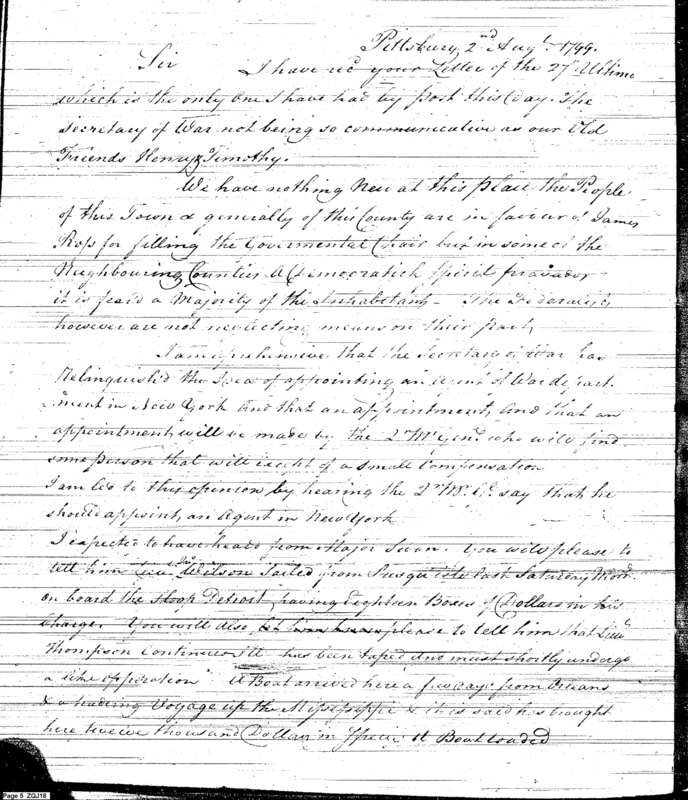 Pittsburg 2nd Augt. 1799.
Sir I have recd your Letter of the 27th Ultimo
which is the only one I have had by post this Day. The
Secretary of War not being so communicative as our Old
Friends Henry & Timothy.
We have nothing New at this place the People
of this Town & generally of this County are in favour of James
Ross for filling the Govermental Chair but in some of the
Neighbouring Counties a Democratick spirit
it is feard a Majority of the Inhabitants - The Federalists
however are not neglecting means on their part,
I am aprehensive that the Secretary of War has
Relinquish'd the Idea of appointing an Agent of War depart
ment in New York and that an appointment, and that an
appointment will be made by the 2r Mr Genl who will find
some person that will except of a small Compensation
I am led to this opinion by hearing the 2r Mr Gl say that he
should appoint, an Agent in New York
I expected to have heard from Major Swan. You will please to
tell him Wilson Sailed from Presqu Isle last Saturday Morng.
on board the Sloop Detroit, having Eighteen Boxes of Dollars in his
charge. You will also let him know please to tell him that Lieut
Thompson continues ill has been taped and must shortly undergo
a like opperation A Boat arrived here a few days from Orleans
& a trading Voyage up the Mississippi & it is said has brought
here twelve thousand Dollars in Specie A Boat loaded
Page 5 ZQJ18